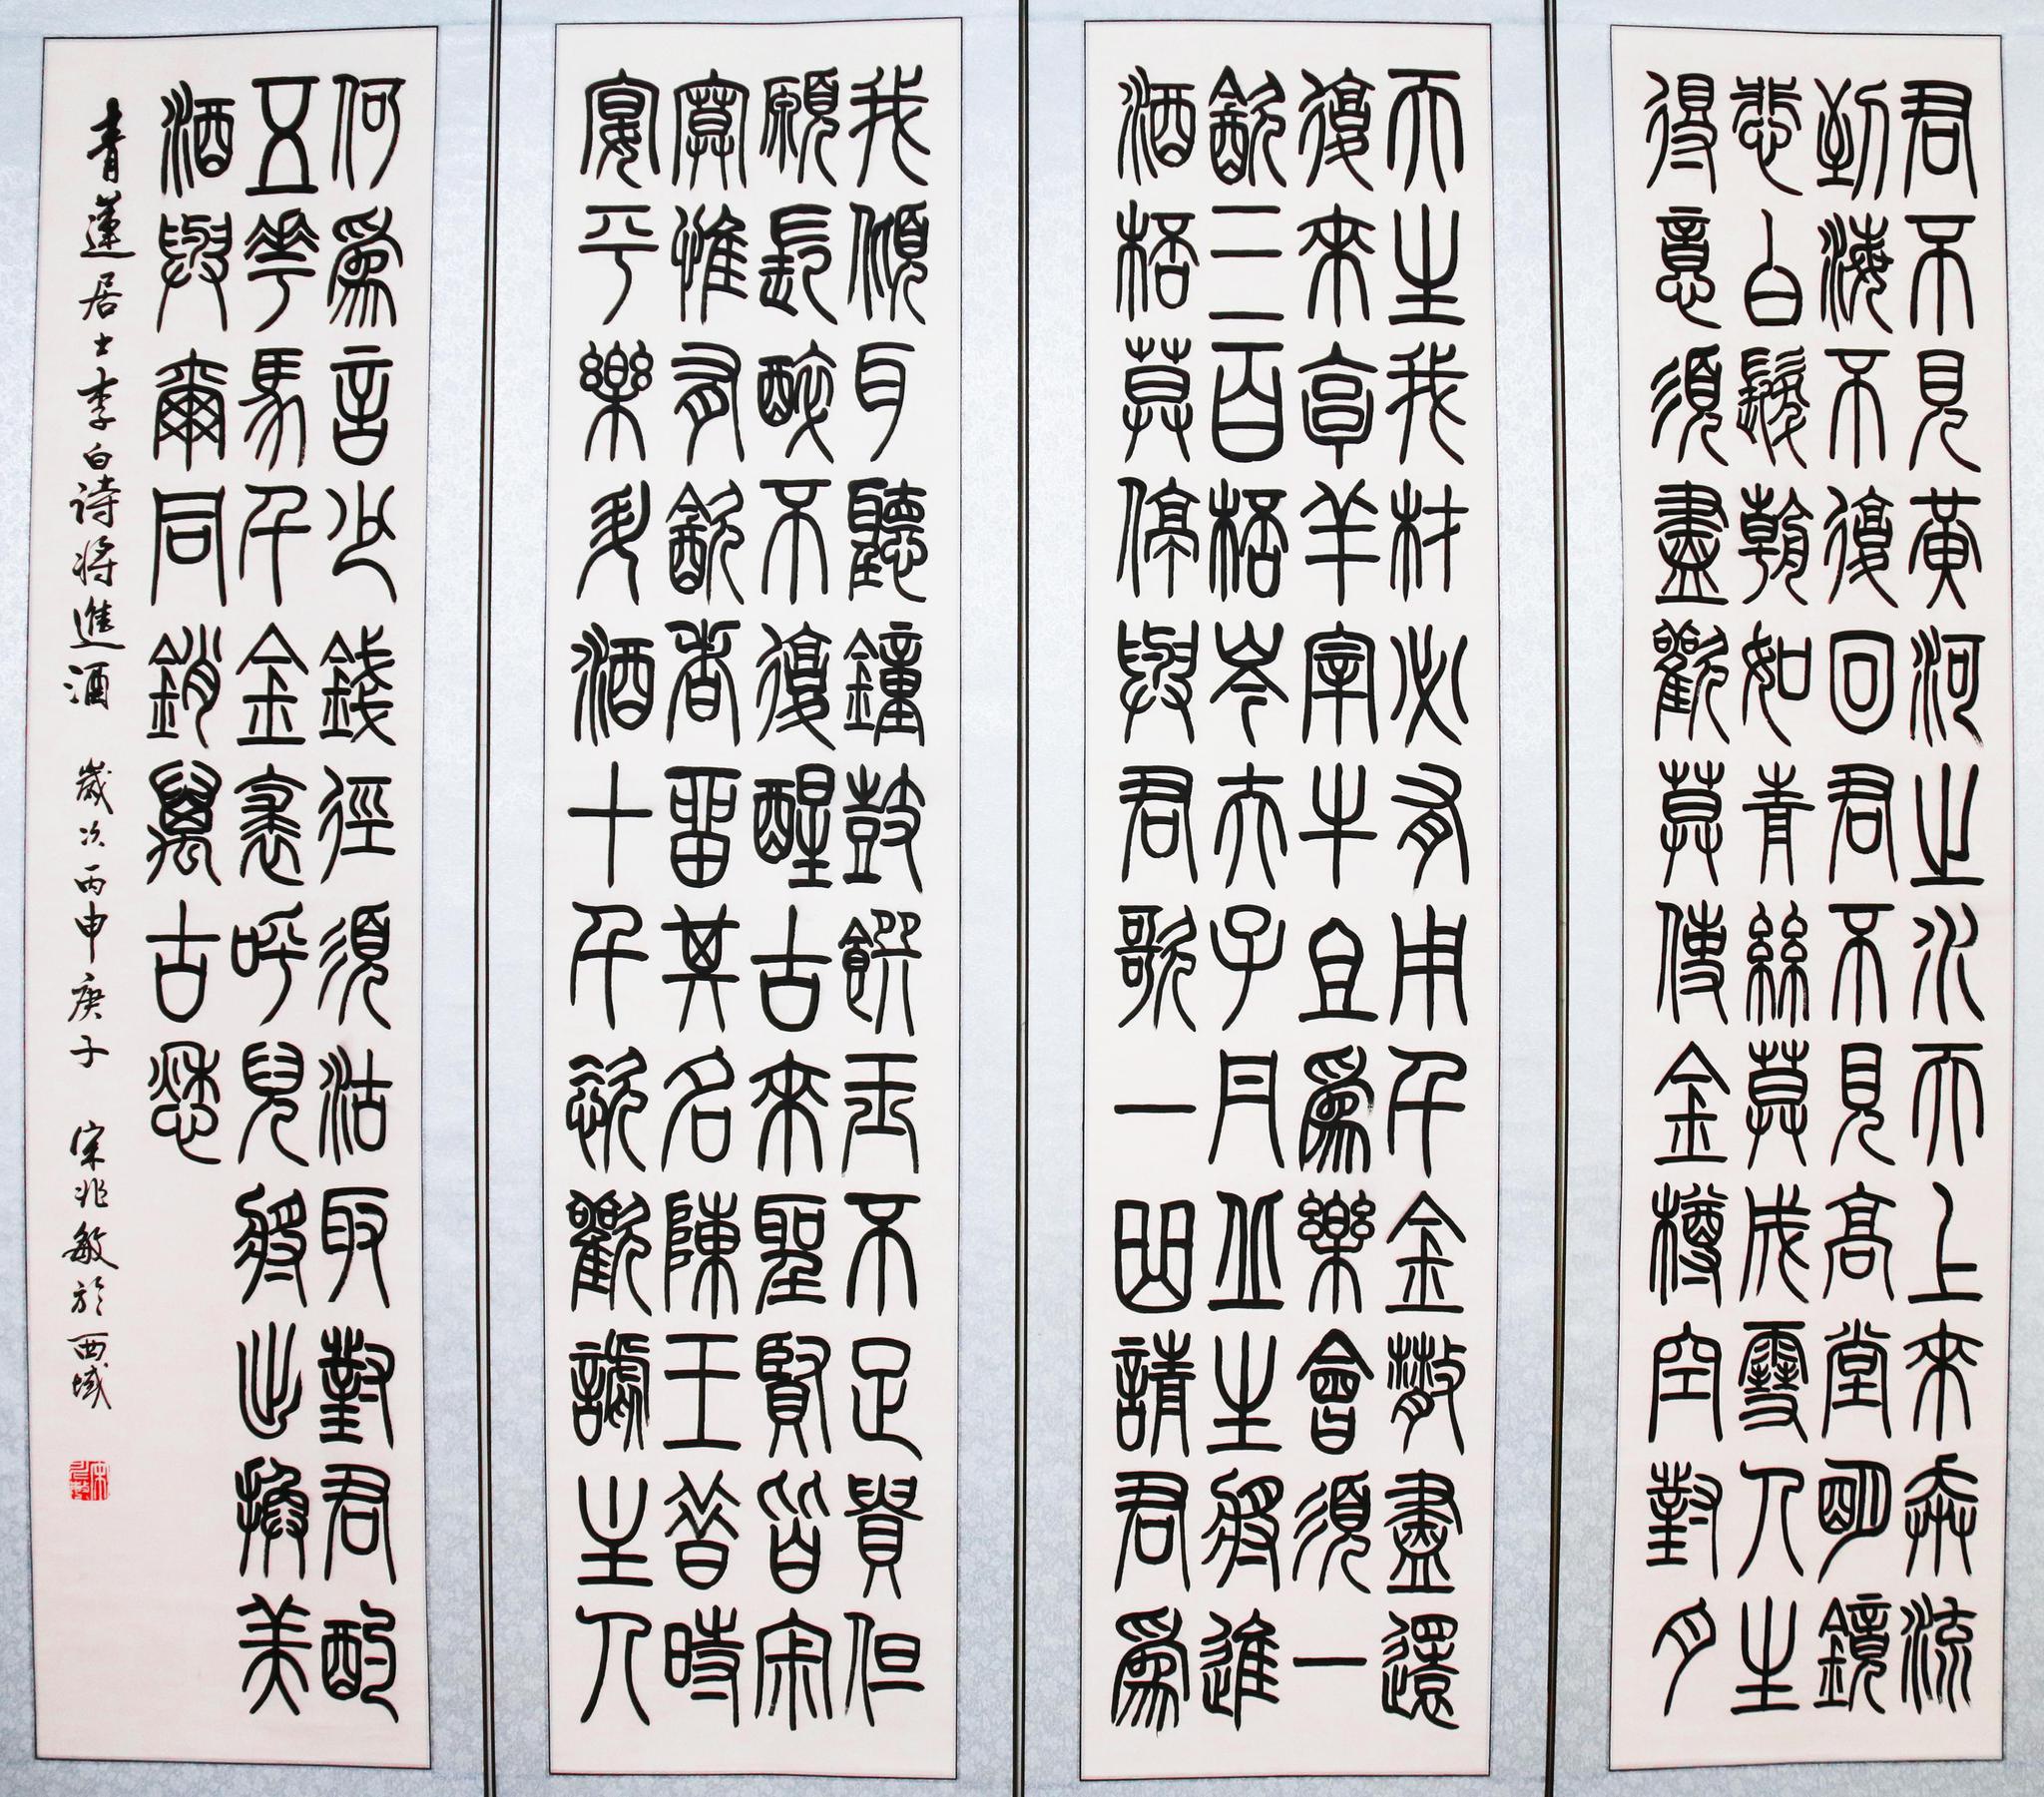 君不見黃河之水天上來奔流
到海不復回君不見高堂明鏡
悲白髮朝如青絲莫成雪人生
得意須盡歡莫使金樽空對月
天生我材必有用千金散盡還
復來烹羊宰牛且爲樂會須一
飲三百桮岑夫子丹丘生將進
酒桮莫停與君歌一曲請君爲
我傾耳聽鐘鼓饌玉不足貴但
願長醉不復醒古來聖賢皆寂
寞惟有飲者留其名陳王昔時
宴平樂斗酒十千恣歡謔主人
何爲言少錢徑須沽取對君酌
五花馬千金裘呼兒將出換美
酒與爾同銷萬古愁
青蓮居士李白诗将進酒 歲次丙申庚子 宋兆敏於西域